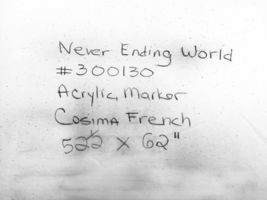 Never Ending World
#300130
Acrylic, Marker
Cosima French
522 x 62"